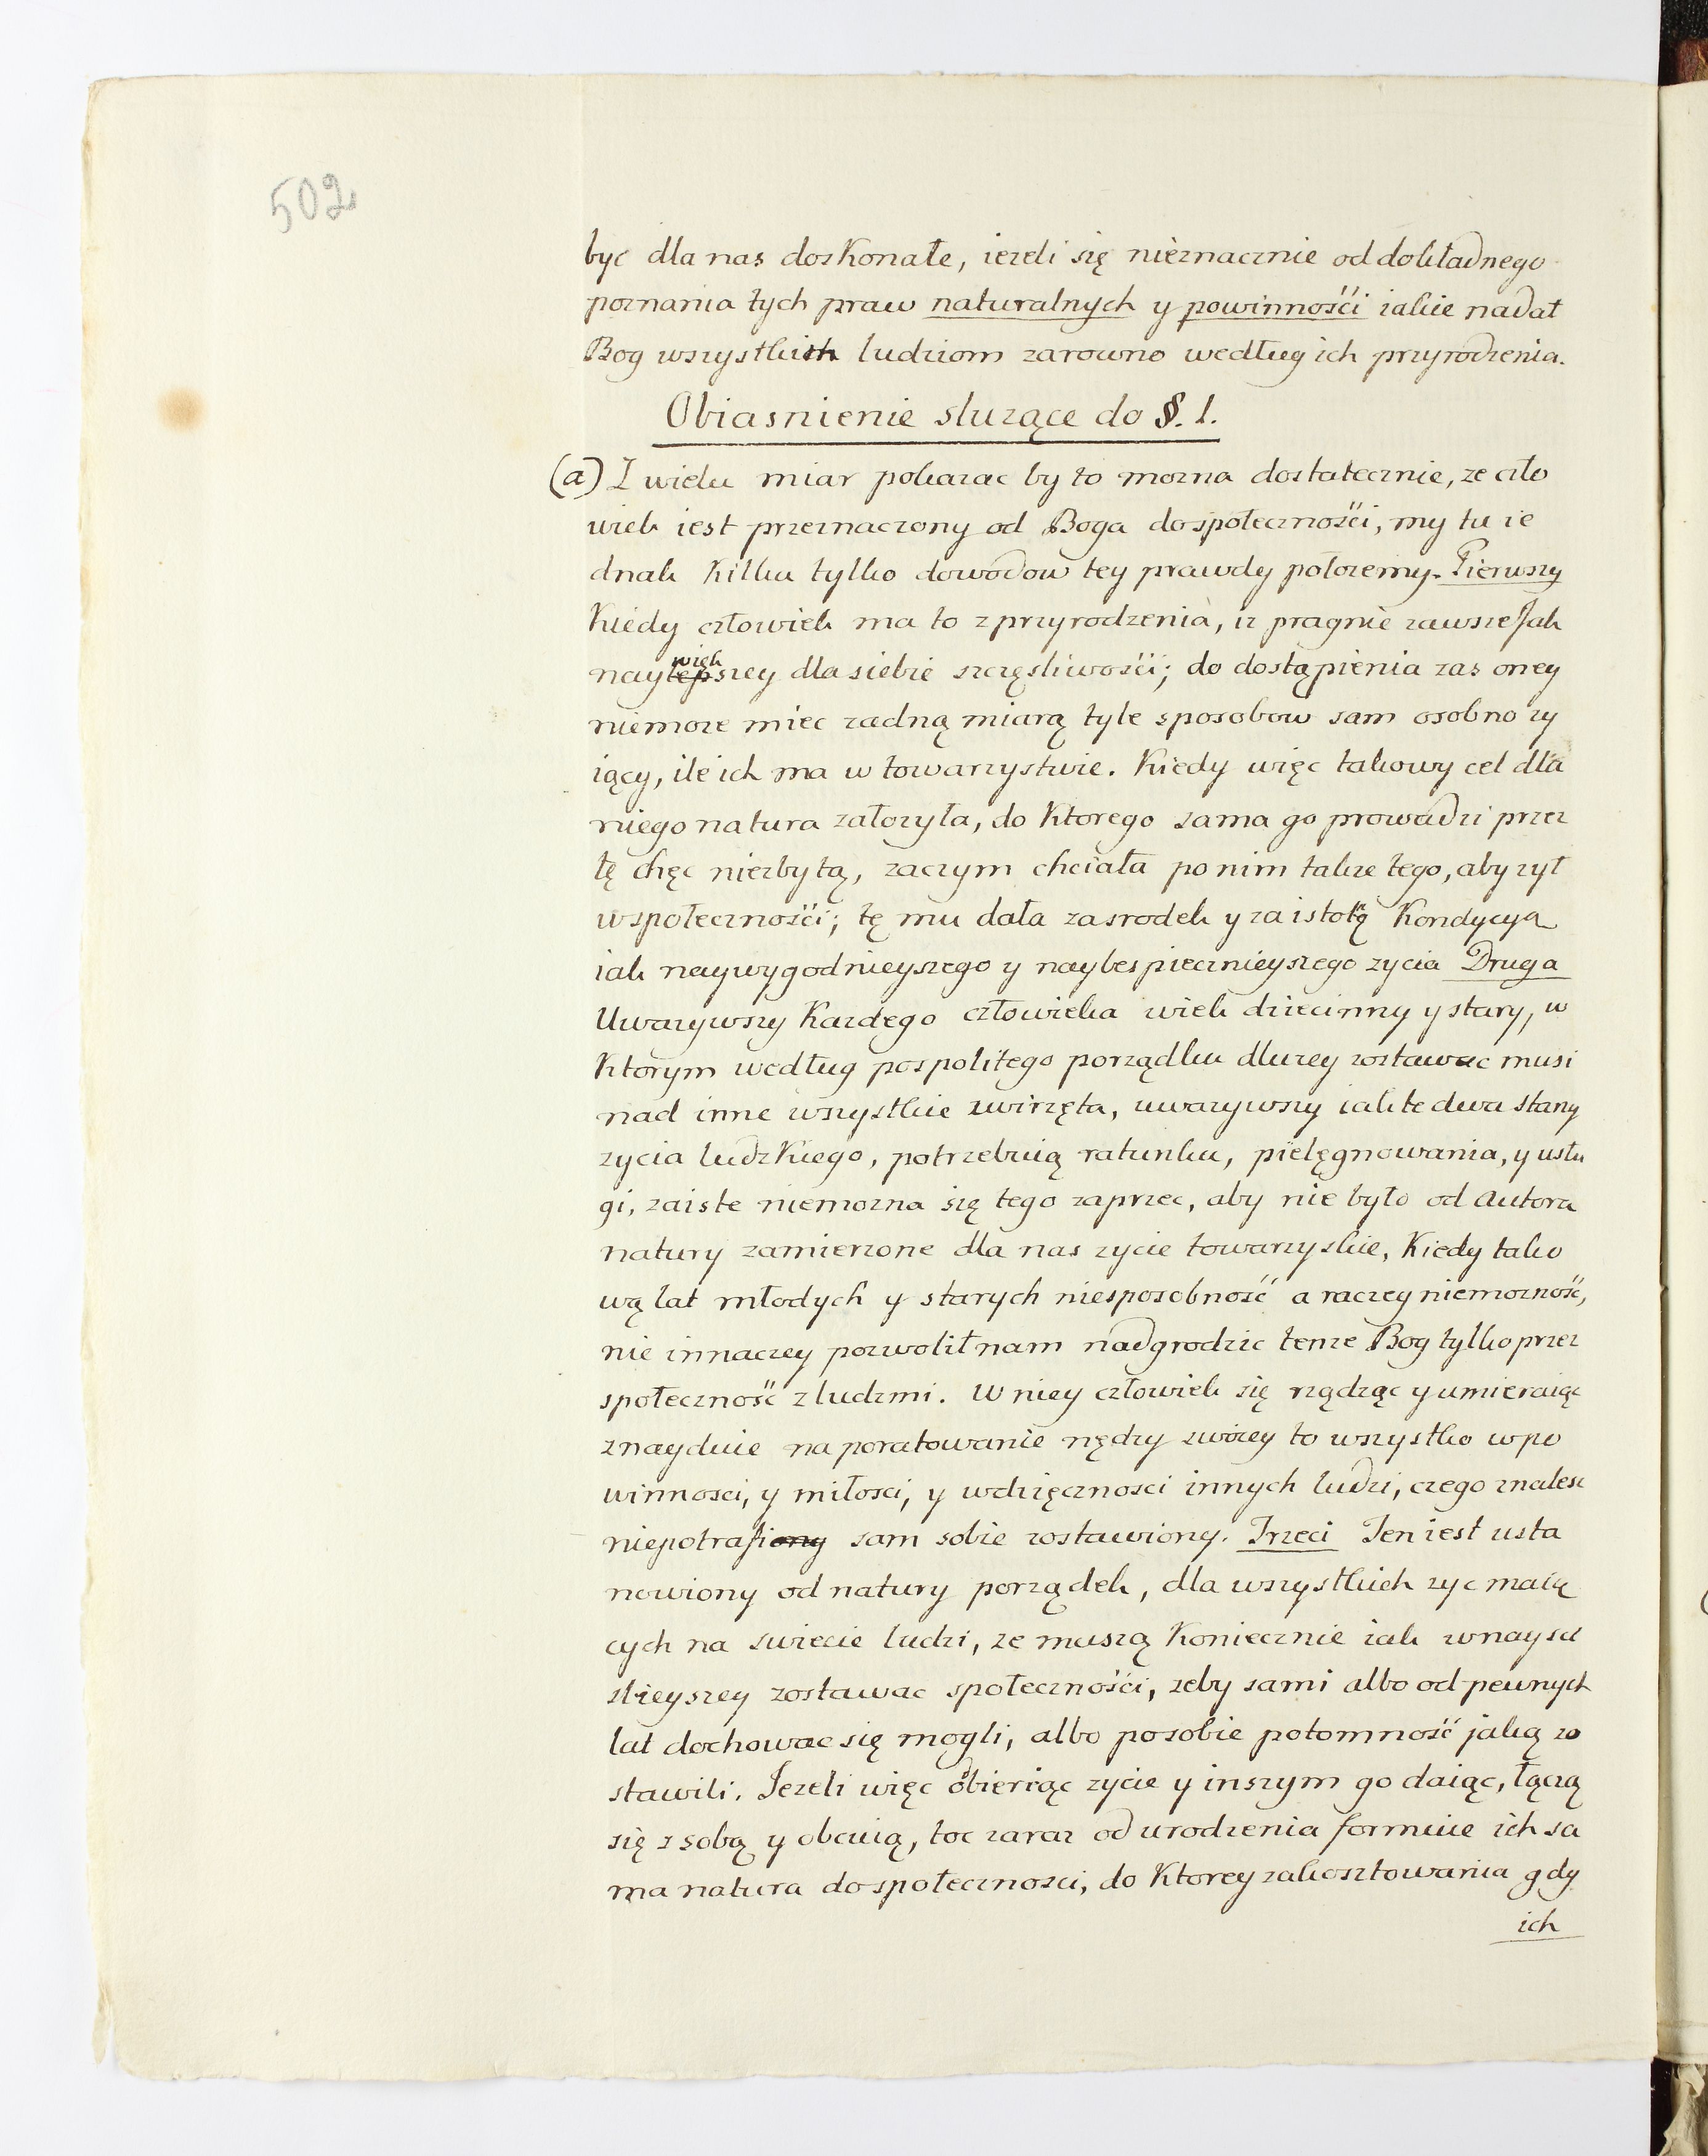 502
byc dla nas doskonałe, iezeli się nieznacznie od dokładnego
poznania tych praw naturalnych y powinnośći iakie nadał
Bog wszystkich ludziom zarowno według ich przyrodzenia.
Obiasnienie sluzące do §. 1.
(a) Z wielu miar pokazac by to mozna dostatecznie, ze czło
wiek iest przeznaczony od Boga do społecznośći, my tu ie
dnak kilku tylko dowodow tey prawdy połozemy. Pierwszy
Kiedy człowiek ma to z przyrodzenia, iz pragnie zawsze Jak
naywiekszey dla siebie szczęsliwośći; do dostąpienia zas oney
niemoze miec zadną miarą tyle sposobow sam osobno zy
iący, ile ich ma w towarzystwie. Kiedy więc takowy cel dla
niego natura załozyła, do Ktorego sama go prowadzi przez
tę chęc niezbytą, zaczym chciała po nim takze tego, aby zył
w społecznośći; tę mu dała za srodek y za istotę Kondycyą
iak naywygodnieyszego y naybespiecznieyszego zycia Druga
Uwazywszy Kazdego człowieka wiek dziecinny y stary, w
Ktorym według pospolitego porządku dluzey zostawac musi
nad inne wszystkie zwirzęta, uwazywszy iak te dwa stany
zycia ludzkiego, potrzebuią ratunku, pielęgnowania, y usłu
gi, zaiste niemozna się tego zaprzec, aby nie było od Autora
natury zamierzone dla nas zycie towarzyskie, Kiedy tako
wą lat młodych y starych niesposobność a raczey niemozność,
nie innaczey pozwolił nam nadgrodzic tenze Bog tylko przez
społeczność z ludzmi. W niey człowiek się rządząc y umieraiąc
znayduie na poratowanie nędzy swoiey to wszystko w po
winnosci, y miłosci, y wdzięcznosci innych ludzi, czego znalesc
niepotrafiony sam sobie zostawiony. Trzeci Ten iest usta
nowiony od natury porządek, dla wszystkich zyc maią
cych na swiecie ludzi, ze muszą Koniecznie iak w naysci
slieyszey zostawac społecznośći, zeby sami albo od pewnych
lat dochowac się mogli, albo po sobie potomność jaką zo
stawili. Jezeli więc obieriąc zycie y inszym go daiąc, łączą
się z sobą y obcuią, toc zaraz od urodzenia formuie ich sa
ma natura do społecznosci, do Ktorey zakosztowania gdy
ich